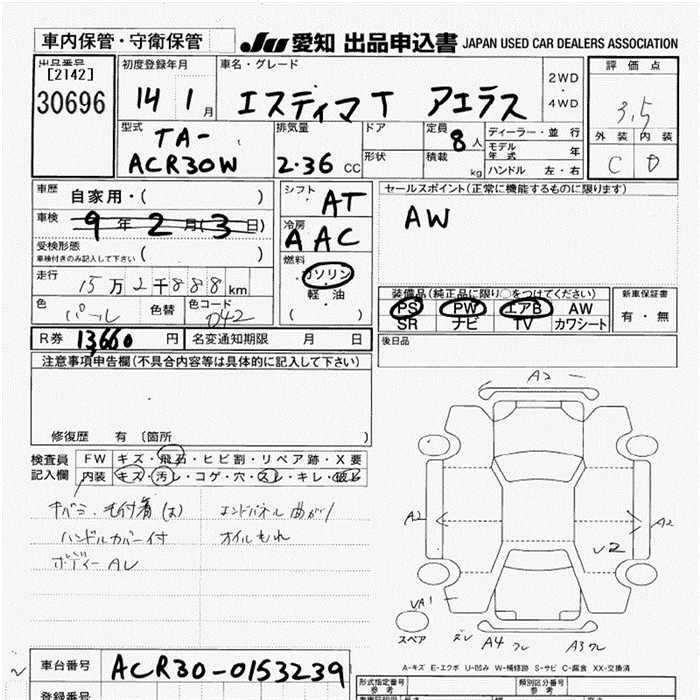 車内保管・守衛保管
JU 愛知 出品申込書 JAPAN USED CAR DEALERS ASSOCIATION
出品番号
[2142]
30696
初度登録年月
14 1 月
車名・グレード
エスティマT アエラス
2WD
・
4WD
評価点
3.5
外装 内装
C D
型式
TA-
ACR30W
排気量
2.36 CC
ドア
形状
定員
8 人
積載
kg
ディーラー・並行
モデル年式 年
ハンドル 左・右
車歴 自家用・( )
車検 9年 2月(3日)
受検形態
車検付きのみ記入して下さい ( )
走行 15万2千888km
色 パール 色替 色コード 042
シフト AT
冷房 AAC
燃料
ガソリン
・
軽・油
( )
セールスポイント(正常に機能するものに限ります)
AW
装備品(純正品に限り○をつけてください)
PS PW エアB AW
SR ナビ TV カワシート
新車保証書
有・無
R券 13,660 円 名変通知期限 月 日
後日品
注意事項申告欄(不具合内容等は具体的に記入して下さい)
修復歴 有 〔箇所 〕
検査員記入欄
FW キズ・飛石・ヒビ割・リペア跡・X要
内装 キズ・汚レ・コゲ・穴・スレ・キレ・破レ
キバミ・毛付着(大) エンドパネル曲がり
ハンドルカバー付 オイルもれ
ボディーAレ
A2
A2
A2
U2
UA1
スペア
ズレ A4 ワレ A3 ワレ
A-キズ E-エクボ U-凹み W-補修跡 S-サビ C-腐食 XX-交換済
車台番号 ACR30-0153239
登録番号
形式指定番号
参考
類別区分番号
参考